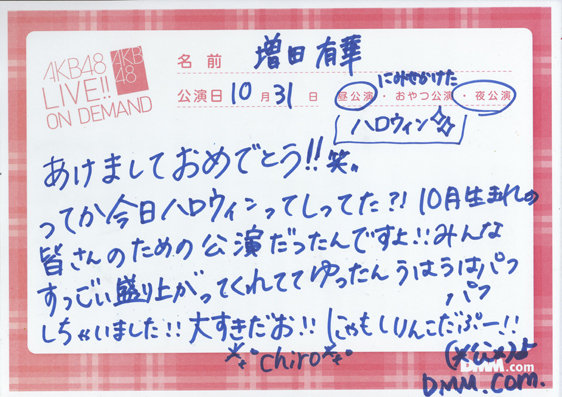 AKB48
LIVE!!
ON DEMAND
AKB
48
名前 増田有華
公演日 10 月 31 日 昼公演・おやつ公演・夜公演
にみせかけた
ハロウィン
あけましておめでとう!!笑。
ってか今日ハロウィンってしってた?!10月生まれの
皆さんのための公演だったんですよ!!みんな
すっごい盛り上がってくれててゆったんうはうはパフ
パフ
しちゃいました!!大すきだお!!にゃもしりんこだぷー!!
chiro
DMM.com
DMM.com.